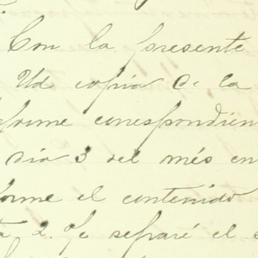 Con la presente
Ud copia C. la
forme correspondien
dia 3 del més en
forme el contenido
separé el s